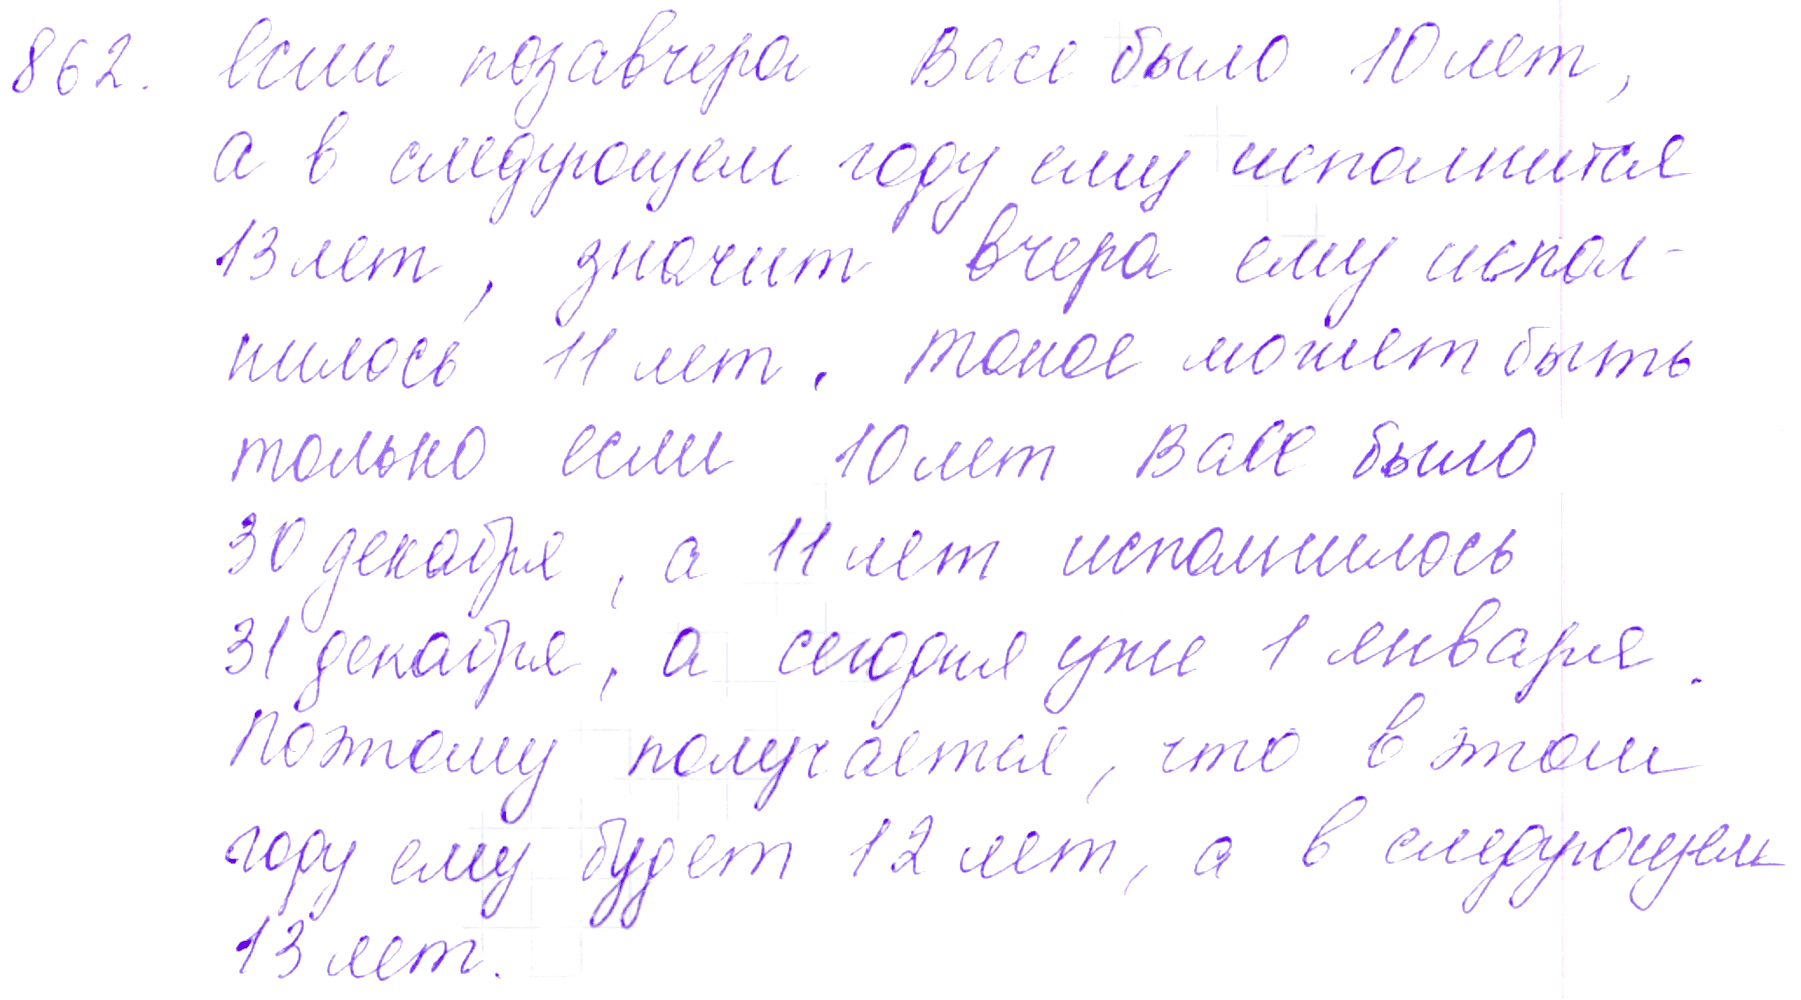 862. Если позавчера Васе было 10 лет,
а в следующем году ему исполнится
13 лет, значит вчера ему испол-
нилось 11 лет. Такое может быть
только если 10 лет Васе было
30 декабря, а 11 лет исполнилось
31 декабря, а сегодня уже 1 января.
Поэтому получается, что в этом
году ему будет 12 лет, а в следующем
13 лет.